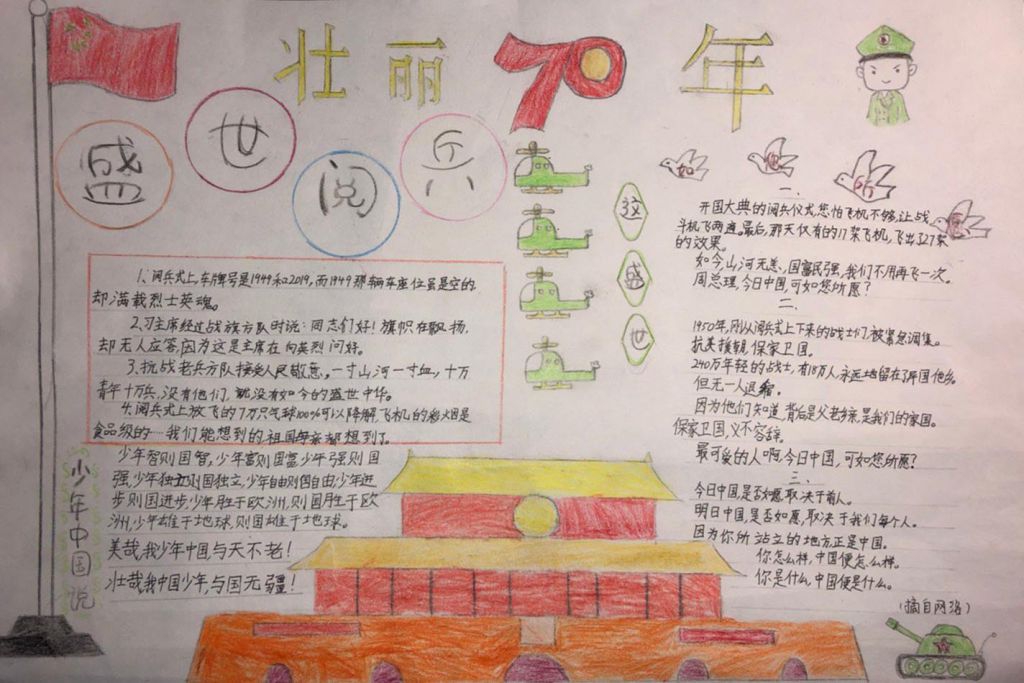 壮丽70年
盛世阅兵
1、阅兵式上,车牌号是1949和2019,而1949那辆车座位虽是空的
却满载烈士英魂。
2、习主席经过战旗方队时说:同志们好!旗帜在飘扬,
却无人应答,因为这是主席在向英烈问好。
3、抗战老兵方队接受人民敬意。一寸山河一寸血,十万
青年十万兵,没有他们,就没有如今的盛世中华。
4、阅兵式上放飞的7万只气球100%可以降解,飞机的彩烟是
食品级的 我们能想到的祖国母亲都想到了
少年中国说
少年智则国智,少年富则国富少年强则国
强,少年独立则国独立,少年自由则国自由,少年进
步则国进步,少年胜于欧洲,则国胜于欧
洲,少年雄于地球,则国雄于地球。
美哉,我少年中国与天不老!
壮哉,我中国少年,与国无疆!
这盛世
如您所愿
一、
开国大典的阅兵仪式,您怕飞机不够,让战
斗机飞两遍。最后,那天仅有的17架飞机,飞出了27架
的效果。
如今,山河无恙,国富民强,我们不用再飞一次。
周总理,今日中国,可如您所愿?
二、
1950年,刚从阅兵式上下来的战士们,被紧急调集。
抗美援朝,保家卫国。
240万年轻的战士,有18万人,永远地留在了异国他乡。
但无一人退缩。
因为他们知道,背后是父老乡亲,是我们的家国。
保家卫国,义不容辞。
最可爱的人啊,今日中国,可如您所愿?
三、
今日中国,是否如愿,取决于前人。
明日中国,是否如愿,取决于我们每个人。
因为你所站立的地方正是中国。
你怎么样,中国便怎么样。
你是什么,中国便是什么。
(摘自网络)